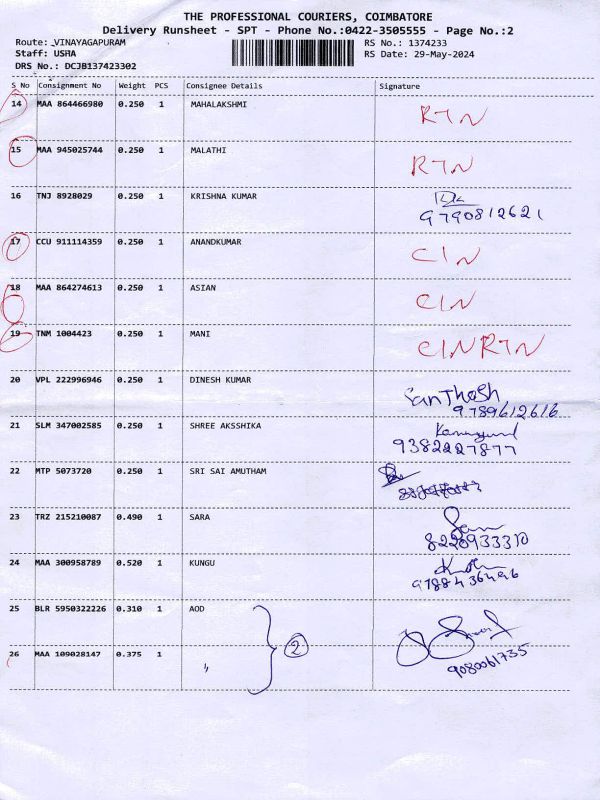 THE PROFESSIONAL COURIERS, COIMBATORE
Delivery Runsheet - SPT - Phone No.:0422-3505555 - Page No.:2
Route: VINAYAGAPURAM RS No.: 1374233
Staff: USHA RS Date: 29-May-2024
DRS No.: DCJB137423302
S No Consignment No Weight PCS Consignee Details Signature
14 MAA 864466980 0.250 1 MAHALAKSHMI RTN
15 MAA 945025744 0.250 1 MALATHI RTN
16 TNJ 8928029 0.250 1 KRISHNA KUMAR
9790812621
17 CCU 911114359 0.250 1 ANANDKUMAR CIN
18 MAA 864274613 0.250 1 ASIAN CIN
19 TNM 1004423 0.250 1 MANI CIN RTN
20 VPL 222996946 0.250 1 DINESH KUMAR SanThosh
9789612616
21 SLM 347002585 0.250 1 SHREE AKSSHIKA
9382227877
22 MTP 5073720 0.250 1 SRI SAI AMUTHAM
23 TRZ 215210087 0.490 1 SARA
8220933310
24 MAA 300958789 0.520 1 KUNGU
9788436496
25 BLR 5950322226 0.310 1 AOD
2
26 MAA 109028147 0.375 1 "
9080061735